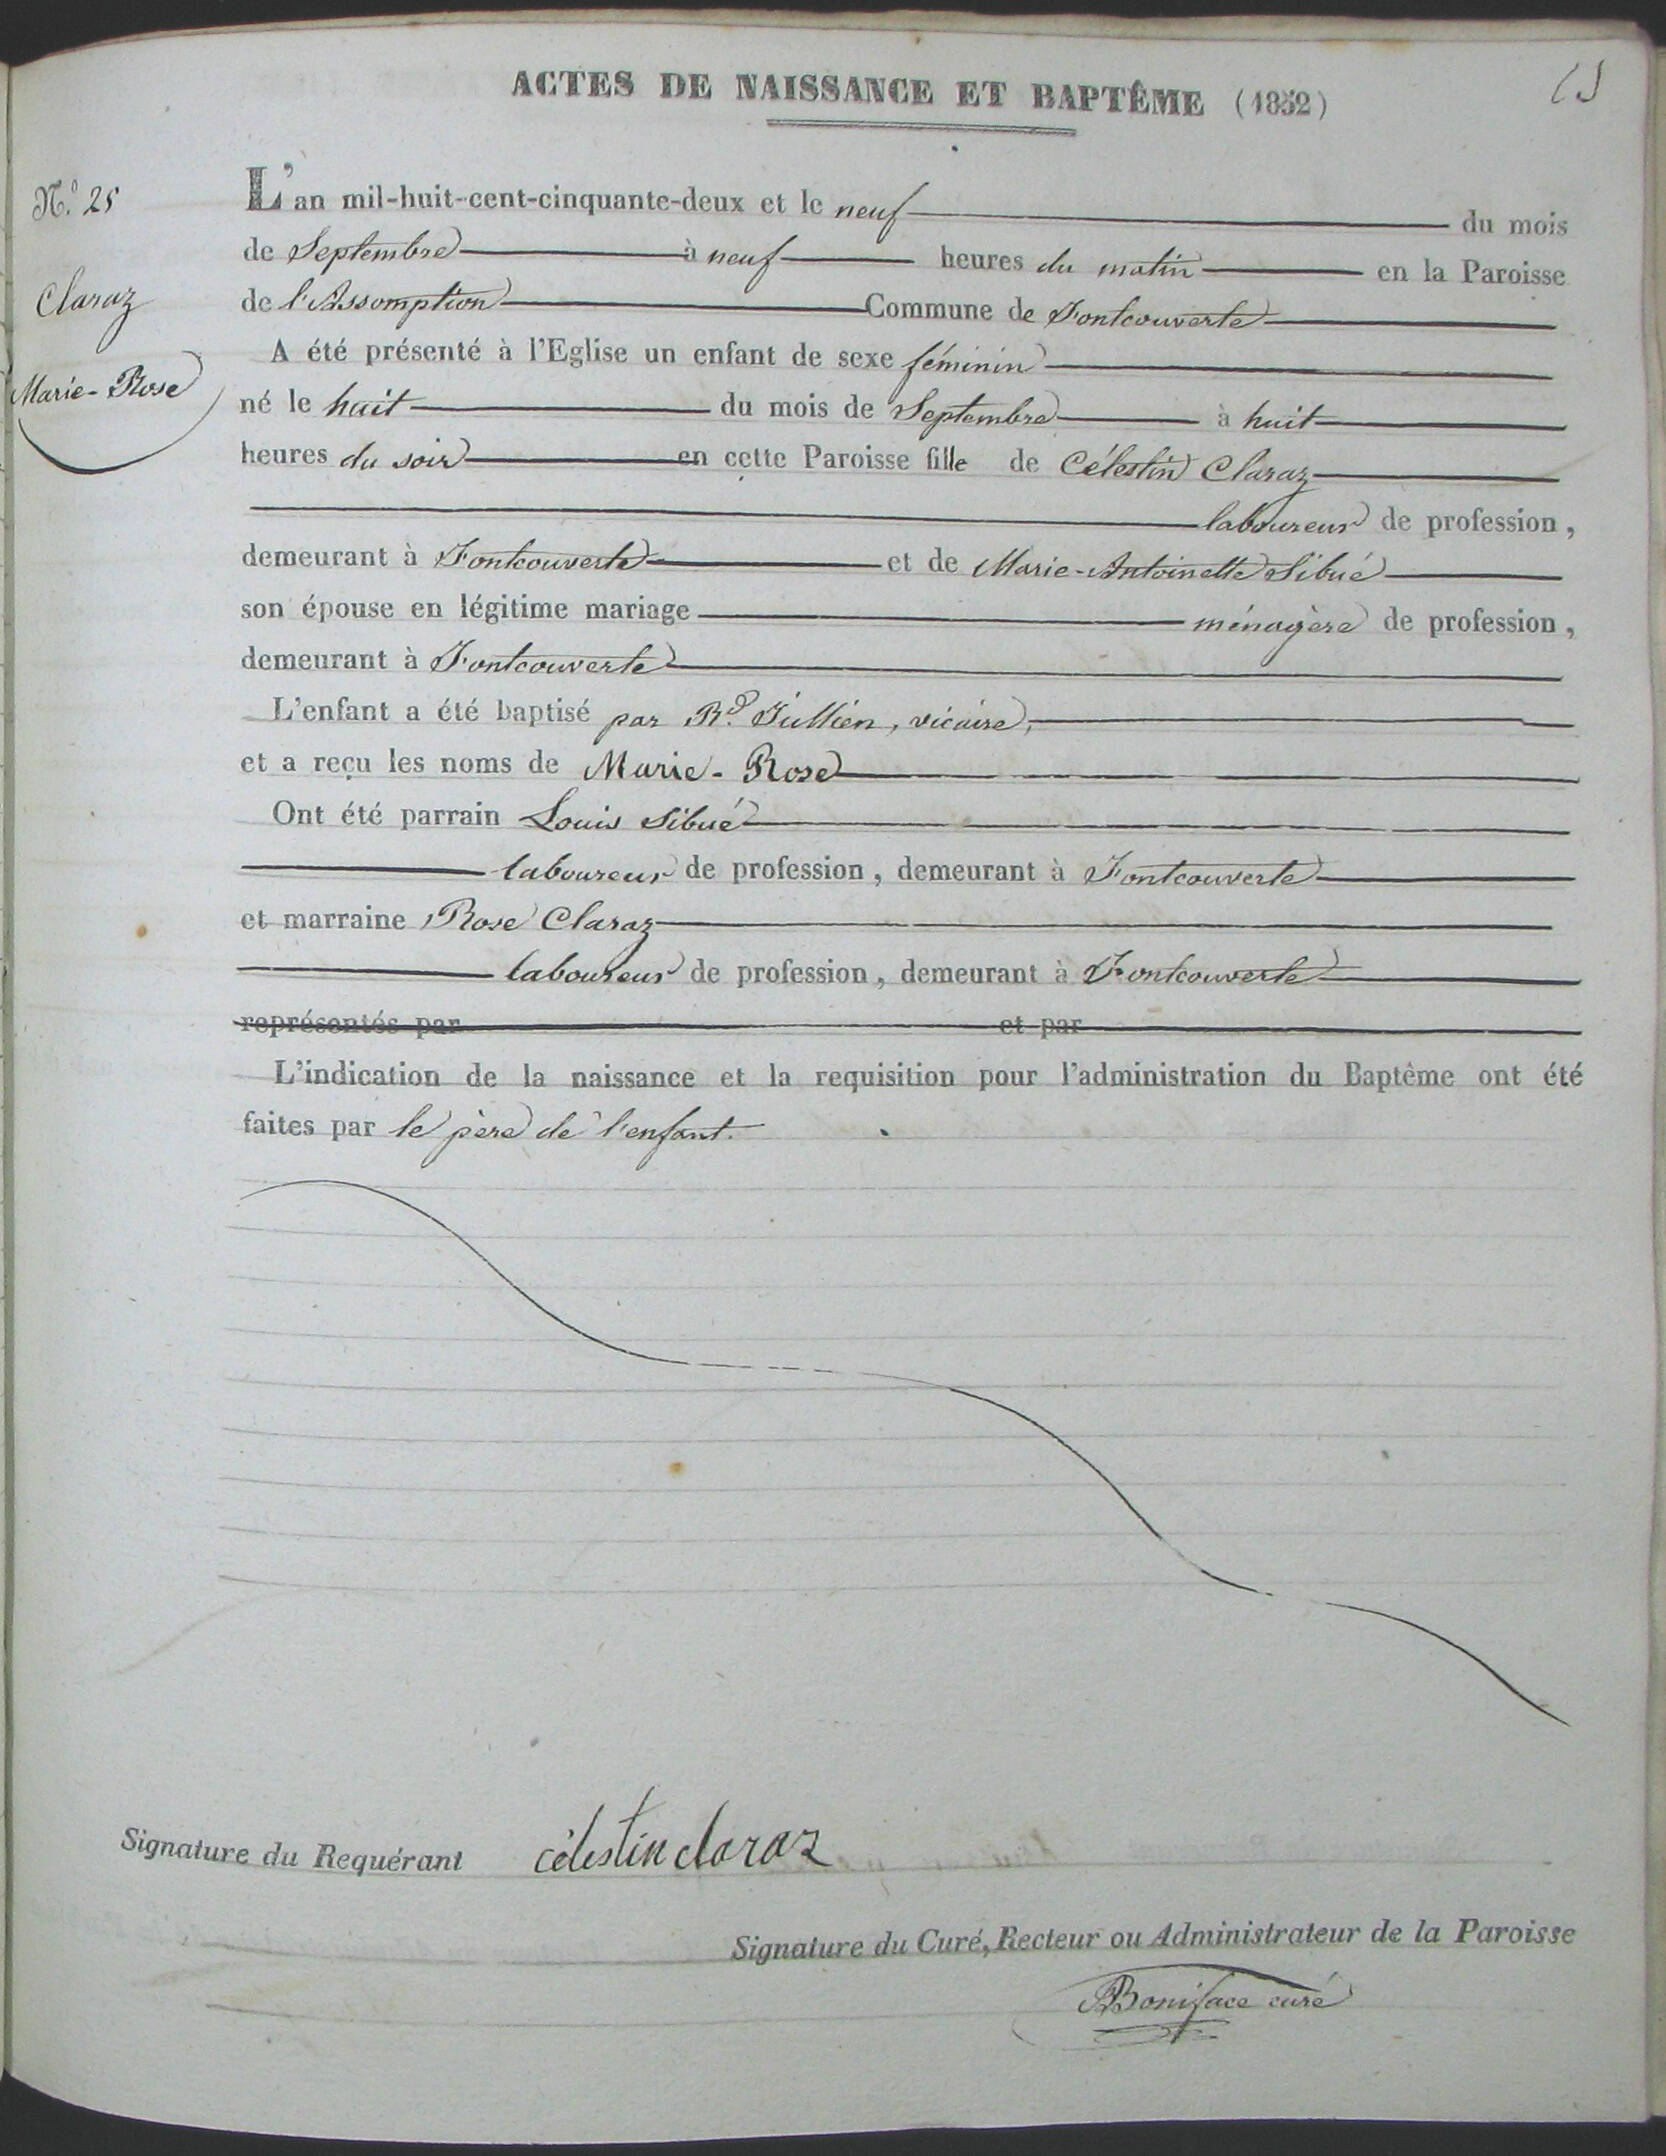 ACTES DE NAISSANCE ET BAPTÊME (1852)
N.o 25
Claraz
Marie-Rose
L'an mil-huit-cent-cinquante-deux et le neuf du mois
de Septembre à neuf heures du matin en la Paroisse
de l'Assomption Commune de Fontcouverte
A été présenté à l'Eglise un enfant de sexe féminin
né le huit du mois de Septembre à huit
heures du soir en cette Paroisse fille de Célestin Claraz
laboureur de profession,
demeurant à Fontcouverte et de Marie-Antoinette Sibué
son épouse en légitime mariage ménagère de profession,
demeurant à Fontcouverte
L'enfant a été baptisé par Rd. Jullien, vicaire,
et a reçu les noms de Marie-Rose
Ont été parrain Louis Sibué
laboureur de profession, demeurant à Fontcouverte
et marraine Rose Claraz
laboureur de profession, demeurant à Fontcouverte
représentés par et par
L'indication de la naissance et la requisition pour l'administration du Baptême ont été
faites par le père de l'enfant.
Signature du Requérant célestin claraz
Signature du Curé, Recteur ou Administrateur de la Paroisse
Boniface curé